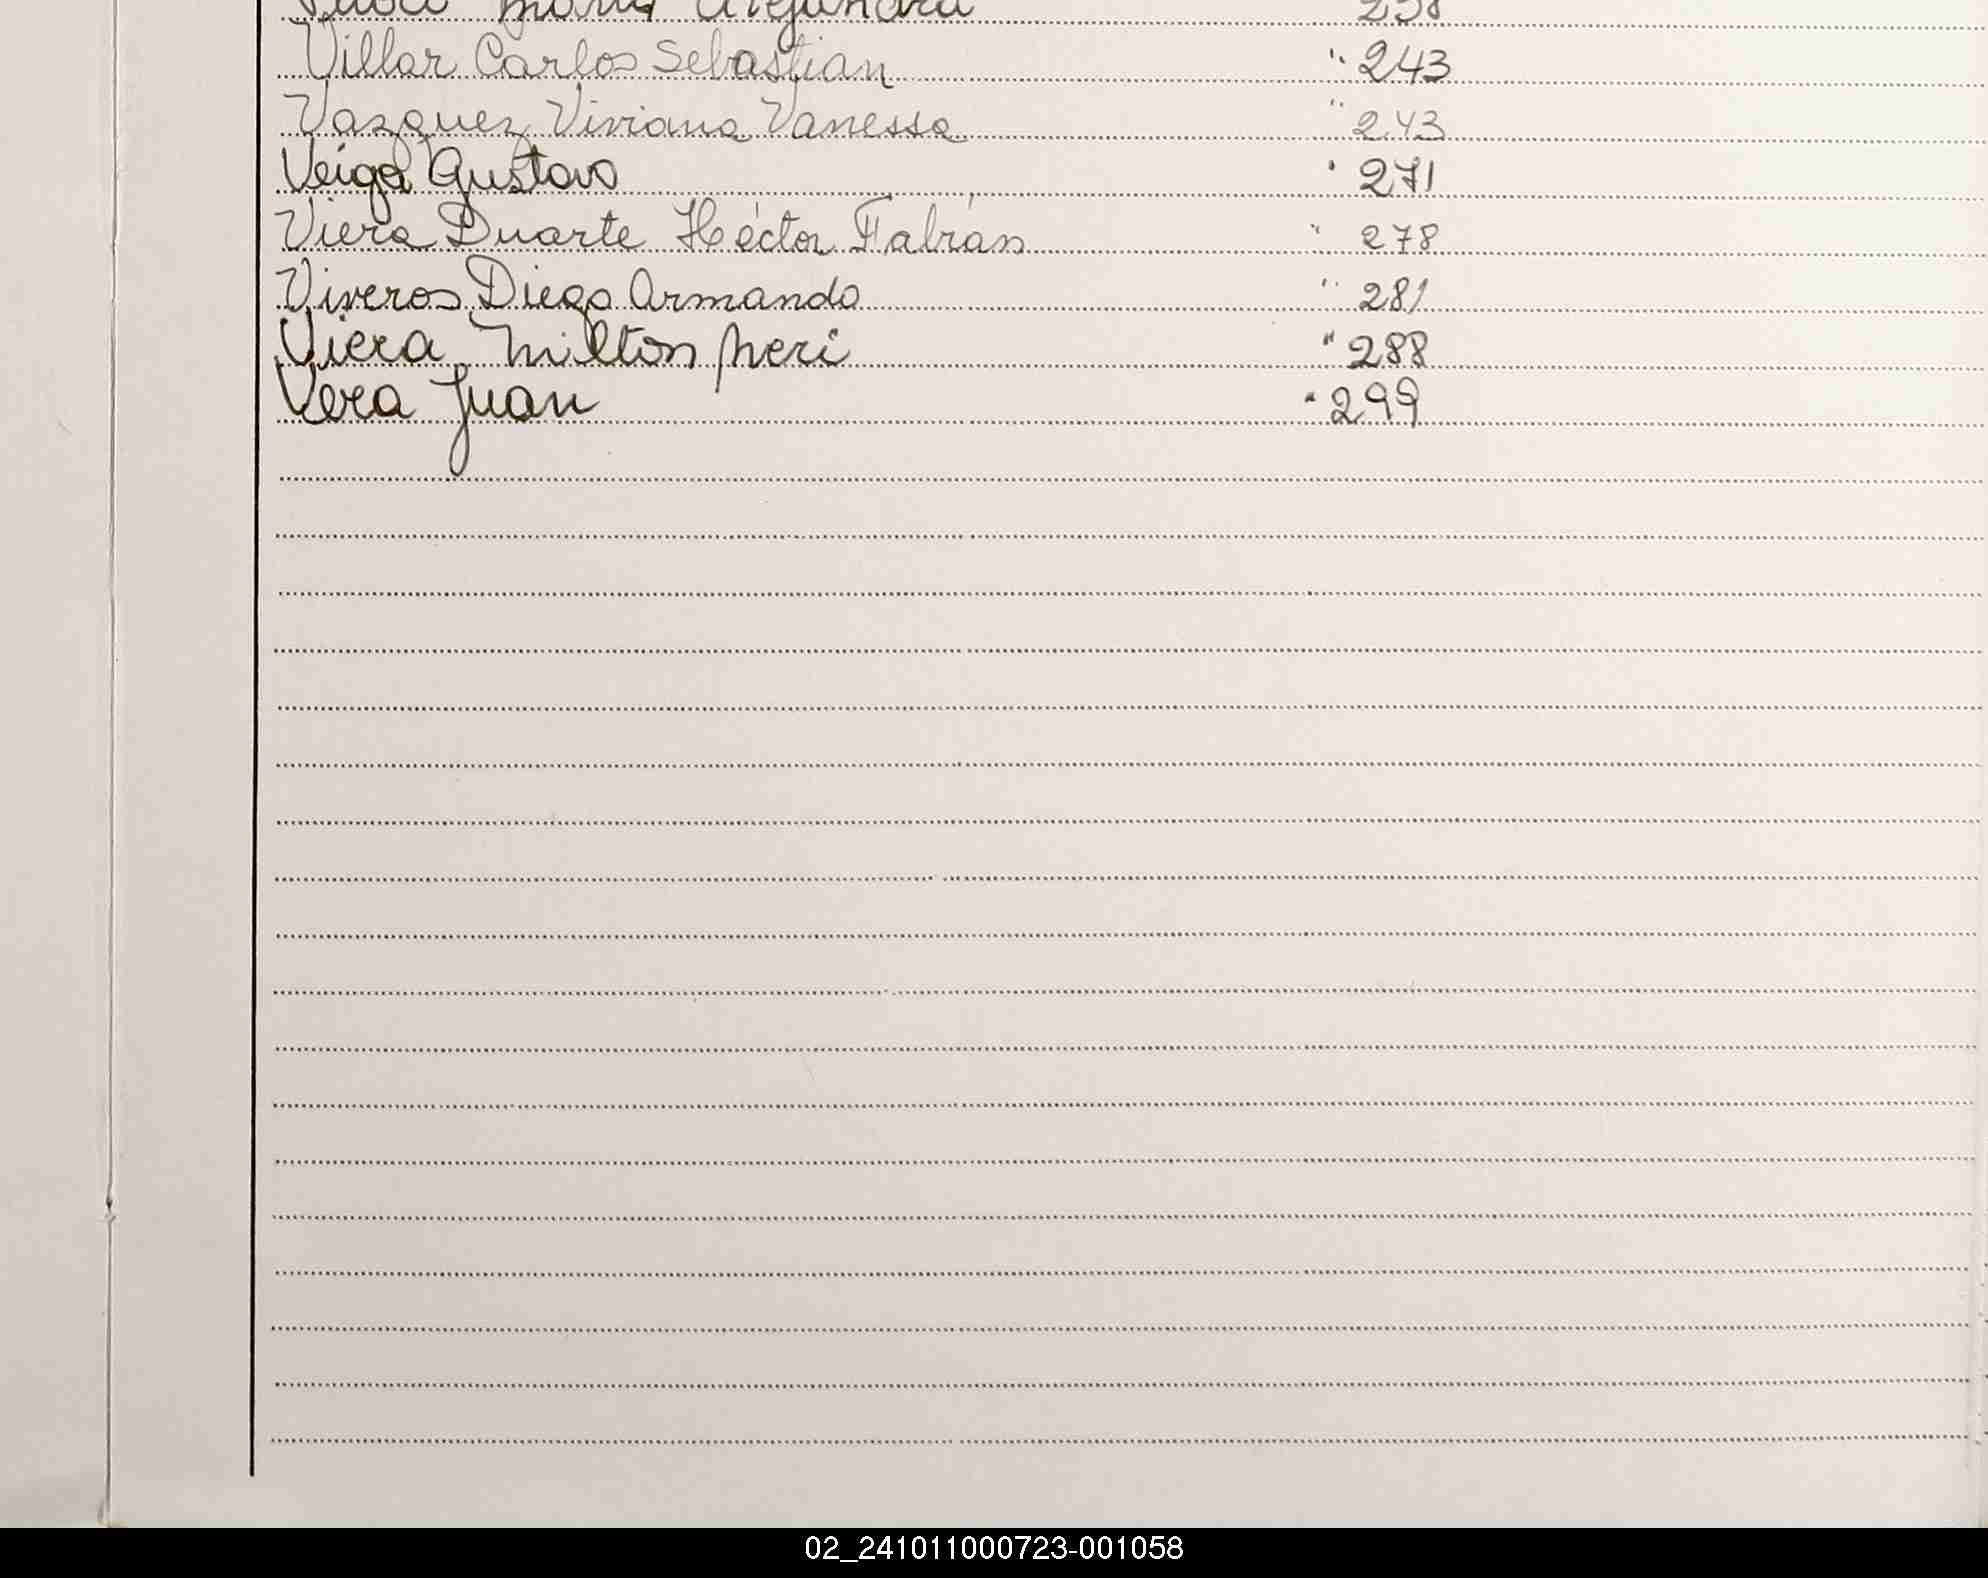 Maria Alejandra 238
Villar Carlos Sebastian " 243
Vazquez Viviana Vanessa " 243
Veiga Gustavo " 271
Viera Duarte Héctor Fabián " 278
Viveros Diego Armando " 281
Viera Milton Neri " 288
Vera Juan " 299
02_241011000723-001058